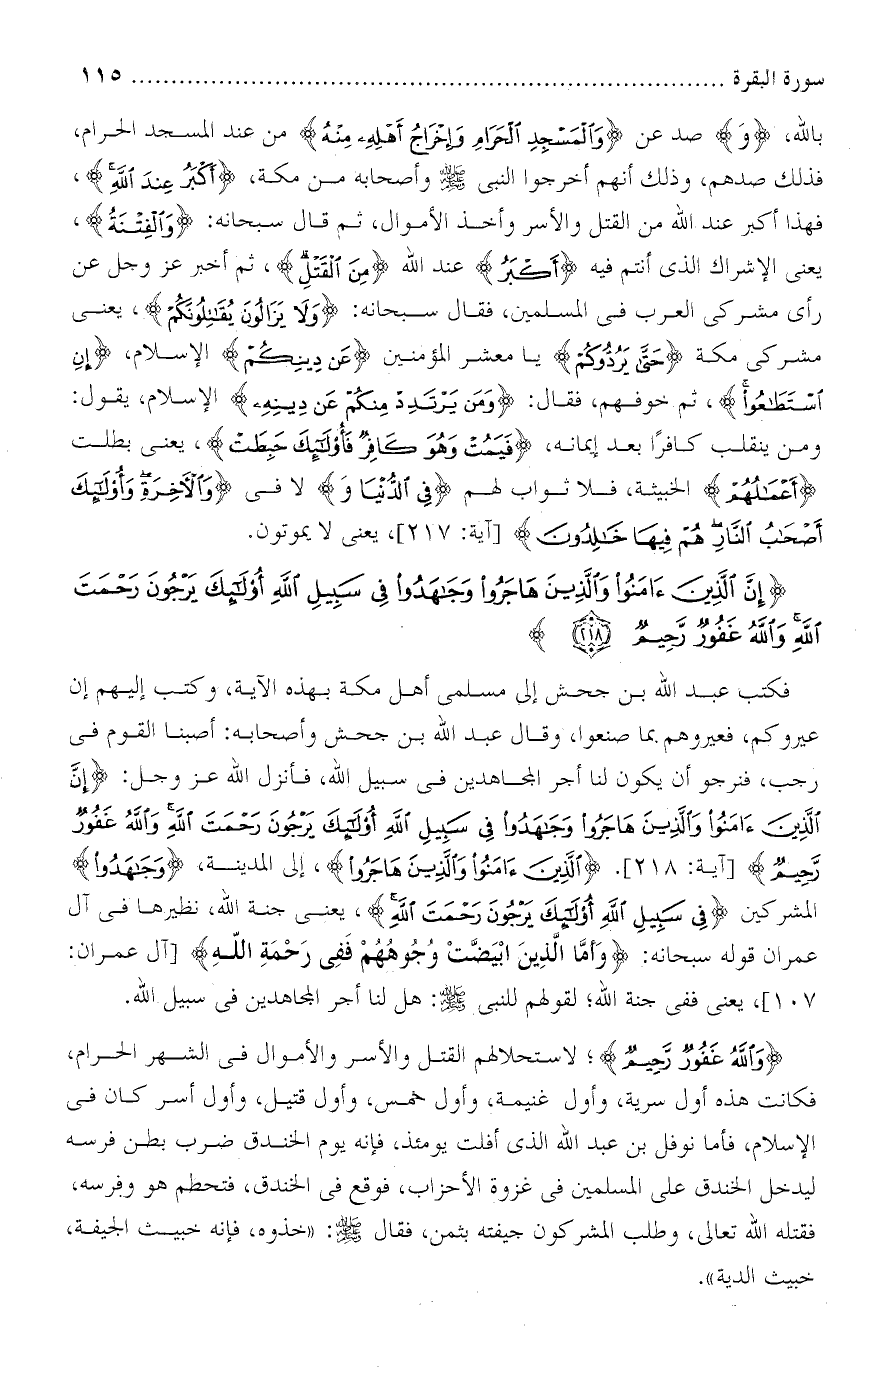 سورة البقرة ................................................................ ١١٥
بالله، ﴿وَ﴾ صد عن ﴿وَٱلْمَسْجِدِ ٱلْحَرَامِ وَإِخْرَاجُ أَهْلِهِۦ مِنْهُ﴾ من عند المسجد الحرام،
فذلك صدهم، وذلك أنهم أخرجوا النبى ﷺ وأصحابه من مكة، ﴿أَكْبَرُ عِندَ ٱللَّهِ﴾،
فهذا أكبر عند الله من القتل والأسر وأخذ الأموال، ثم قال سبحانه: ﴿وَٱلْفِتْنَةُ﴾،
يعنى الإشراك الذى أنتم فيه ﴿أَكْبَرُ﴾ عند الله ﴿مِنَ ٱلْقَتْلِ﴾، ثم أخبر عز وجل عن
رأى مشركى العرب فى المسلمين، فقال سبحانه: ﴿وَلَا يَزَالُونَ يُقَٰتِلُونَكُمْ﴾، يعنى
مشركى مكة ﴿حَتَّىٰ يَرُدُّوكُمْ﴾ يا معشر المؤمنين ﴿عَن دِينِكُمْ﴾ الإسلام، ﴿إِنِ
ٱسْتَطَٰعُوا۟﴾، ثم خوفهم، فقال: ﴿وَمَن يَرْتَدِدْ مِنكُمْ عَن دِينِهِۦ﴾ الإسلام، يقول:
ومن ينقلب كافرًا بعد إيمانه، ﴿فَيَمُتْ وَهُوَ كَافِرٌ فَأُو۟لَٰٓئِكَ حَبِطَتْ﴾، يعنى بطلت
﴿أَعْمَٰلُهُمْ﴾ الخبيثة، فلا ثواب لهم ﴿فِى ٱلدُّنْيَا وَ﴾ لا فى ﴿وَٱلْءَاخِرَةِ وَأُو۟لَٰٓئِكَ
أَصْحَٰبُ ٱلنَّارِ هُمْ فِيهَا خَٰلِدُونَ﴾ [آية: ٢١٧]، يعنى لا يموتون.
﴿إِنَّ ٱلَّذِينَ ءَامَنُوا۟ وَٱلَّذِينَ هَاجَرُوا۟ وَجَٰهَدُوا۟ فِى سَبِيلِ ٱللَّهِ أُو۟لَٰٓئِكَ يَرْجُونَ رَحْمَتَ
ٱللَّهِ وَٱللَّهُ غَفُورٌ رَّحِيمٌ ٢١٨﴾
فكتب عبد الله بن جحش إلى مسلمى أهل مكة بهذه الآية، وكتب إليهم إن
عيروكم، فعيروهم بما صنعوا، وقال عبد الله بن جحش وأصحابه: أصبنا القوم فى
رجب، فنرجو أن يكون لنا أجر المجاهدين فى سبيل الله، فأنزل الله عز وجل: ﴿إِنَّ
ٱلَّذِينَ ءَامَنُوا۟ وَٱلَّذِينَ هَاجَرُوا۟ وَجَٰهَدُوا۟ فِى سَبِيلِ ٱللَّهِ أُو۟لَٰٓئِكَ يَرْجُونَ رَحْمَتَ ٱللَّهِ وَٱللَّهُ غَفُورٌ
رَّحِيمٌ﴾ [آية: ٢١٨]. ﴿ٱلَّذِينَ ءَامَنُوا۟ وَٱلَّذِينَ هَاجَرُوا۟﴾، إلى المدينة، ﴿وَجَٰهَدُوا۟﴾
المشركين ﴿فِى سَبِيلِ ٱللَّهِ أُو۟لَٰٓئِكَ يَرْجُونَ رَحْمَتَ ٱللَّهِ﴾، يعنى جنة الله، نظيرها فى آل
عمران قوله سبحانه: ﴿وَأَمَّا الَّذِينَ ابْيَضَّتْ وُجُوهُهُمْ فَفِى رَحْمَةِ اللَّهِ﴾ [آل عمران:
١٠٧]، يعنى ففى جنة الله؛ لقولهم للنبى ﷺ: هل لنا أجر المجاهدين فى سبيل الله.
﴿وَٱللَّهُ غَفُورٌ رَّحِيمٌ﴾؛ لاستحلالهم القتل والأسر والأموال فى الشهر الحرام،
فكانت هذه أول سرية، وأول غنيمة، وأول خمس، وأول قتيل، وأول أسر كان فى
الإسلام، فأما نوفل بن عبد الله الذى أفلت يومئذ، فإنه يوم الخندق ضرب بطن فرسه
ليدخل الخندق على المسلمين فى غزوة الأحزاب، فوقع فى الخندق، فتحطم هو وفرسه،
فقتله الله تعالى، وطلب المشركون جيفته بثمن، فقال ﷺ: «خذوه، فإنه خبيث الجيفة،
خبيث الدية».